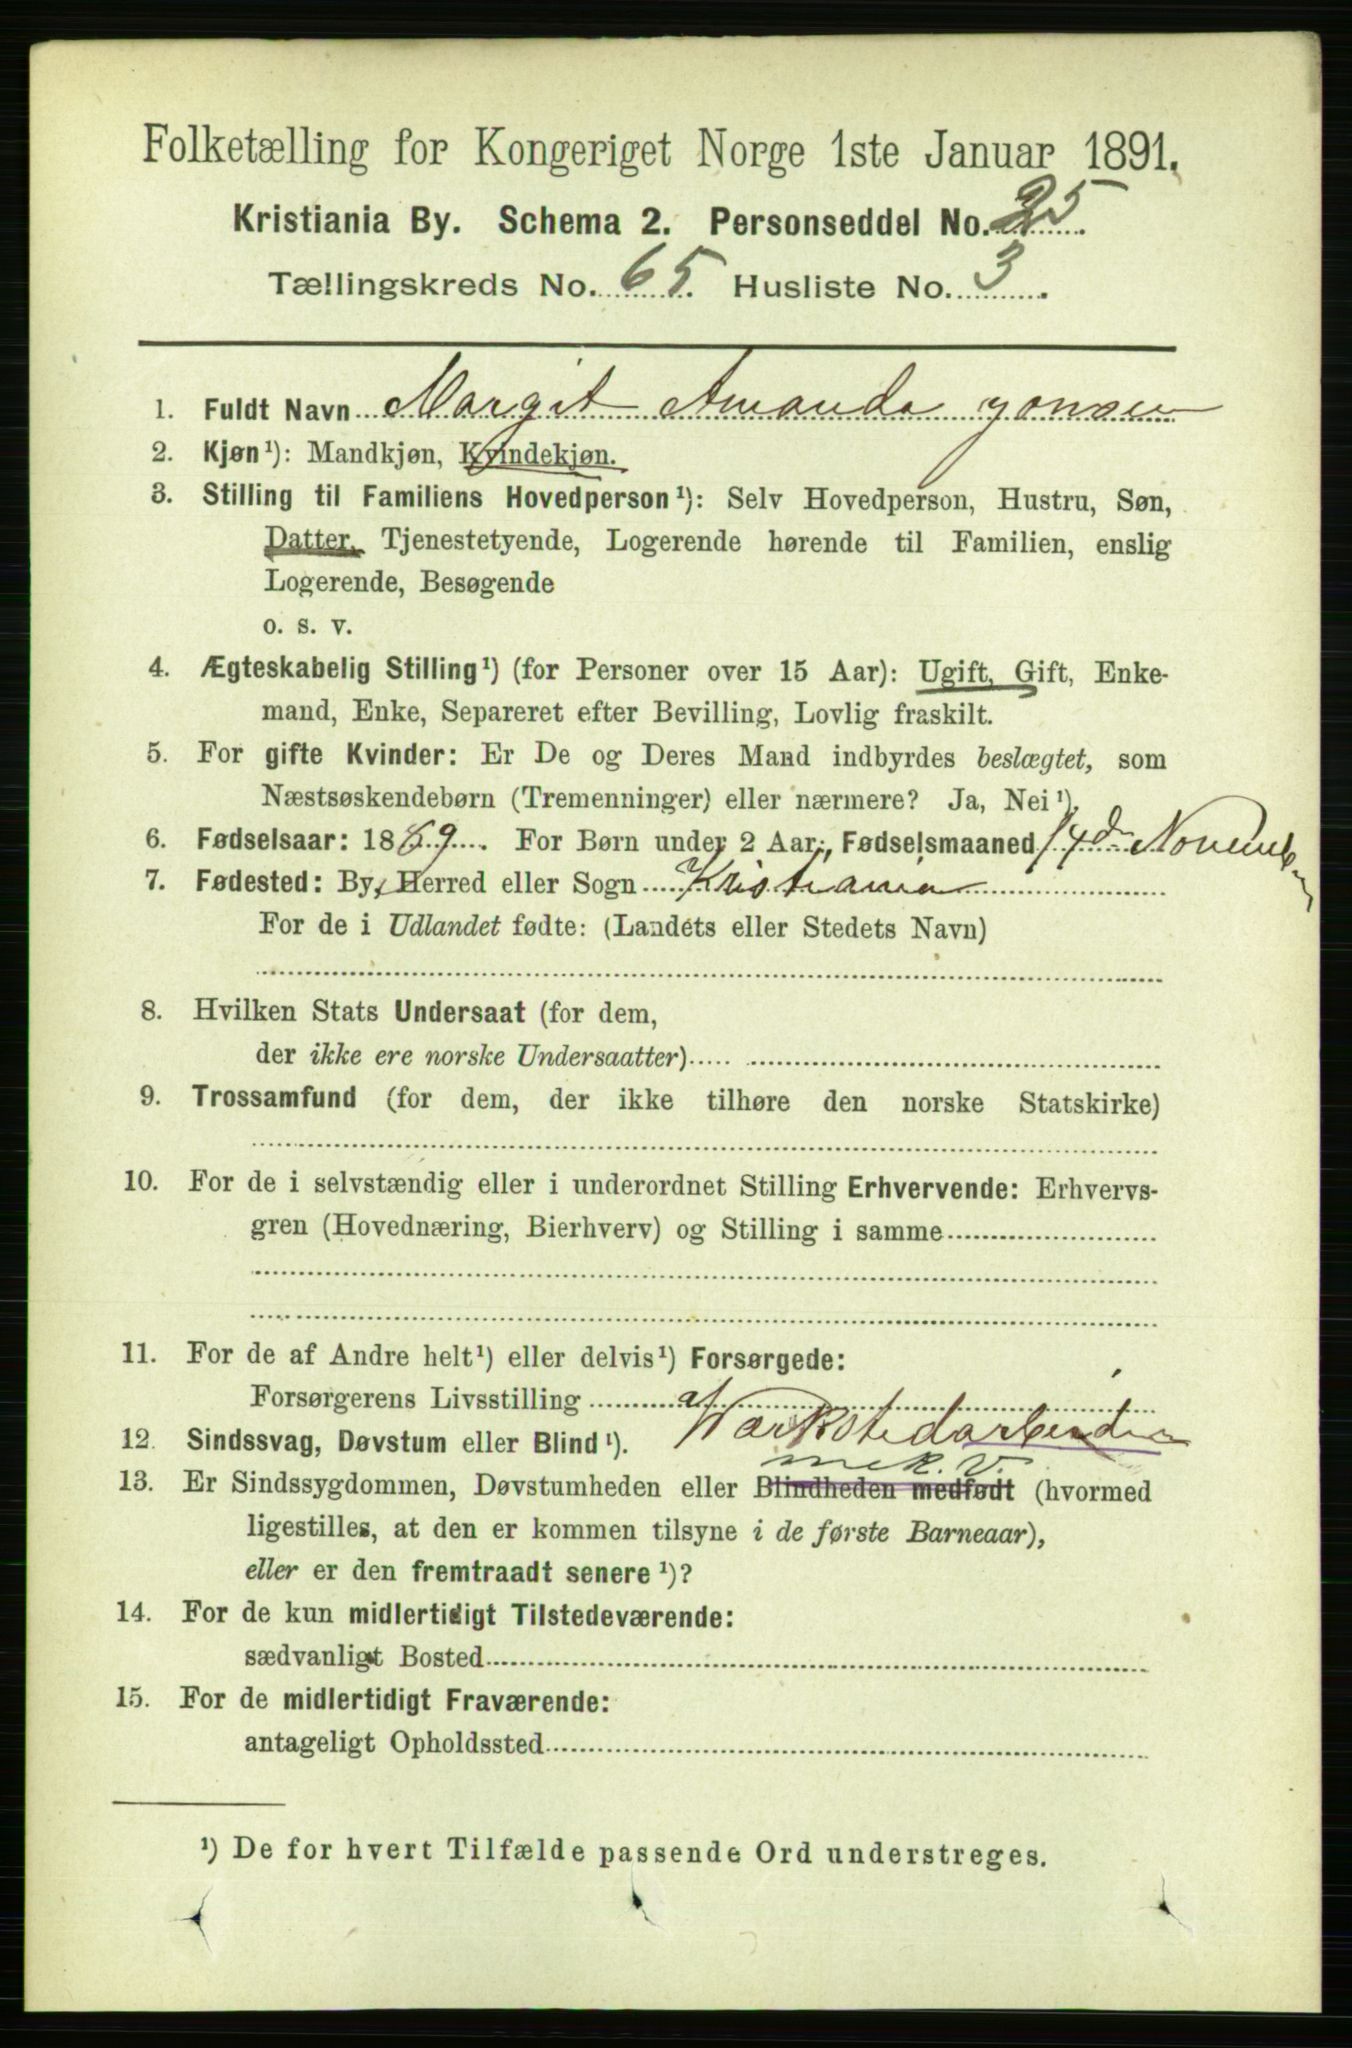 Folketælling for Kongeriget Norge 1ste Januar 1891.
Kristiania By. Schema 2. Personseddel No. 25
Tællingskreds No. 65. Husliste No. 3.
1. Fuldt Navn Margit Amanda Jonsen
2. Kjøn¹): Mandkjøn, Kvindekjøn.
3. Stilling til Familiens Hovedperson¹): Selv Hovedperson, Hustru, Søn,
Datter, Tjenestetyende, Logerende hørende til Familien, enslig
Logerende, Besøgende
o. s. v.
4. Ægteskabelig Stilling¹) (for Personer over 15 Aar): Ugift, Gift, Enke-
mand, Enke, Separeret efter Bevilling, Lovlig fraskilt.
5. For gifte Kvinder: Er De og Deres Mand indbyrdes beslægtet, som
Næstsøskendebørn (Tremenninger) eller nærmere? Ja, Nei¹).
6. Fødselsaar: 1889. For Børn under 2 Aar, Fødselsmaaned 14de November
7. Fødested: By, Herred eller Sogn Kristiania
For de i Udlandet fødte: (Landets eller Stedets Navn)
8. Hvilken Stats Undersaat (for dem,
der ikke ere norske Undersaatter)
9. Trossamfund (for dem, der ikke tilhøre den norske Statskirke)
10. For de i selvstændig eller i underordnet Stilling Erhvervende: Erhvervs-
gren (Hovednæring, Bierhverv) og Stilling i samme
11. For de af Andre helt¹) eller delvis¹) Forsørgede:
Forsørgerens Livsstilling af
12. Sindssvag, Døvstum eller Blind¹). Værkstedarbeider
mek. V.
13. Er Sindssygdommen, Døvstumheden eller Blindheden medfødt (hvormed
ligestilles, at den er kommen tilsyne i de første Barneaar),
eller er den fremtraadt senere¹)?
14. For de kun midlertidigt Tilstedeværende:
sædvanligt Bosted
15. For de midlertidigt Fraværende:
antageligt Opholdssted
¹) De for hvert Tilfælde passende Ord understreges.